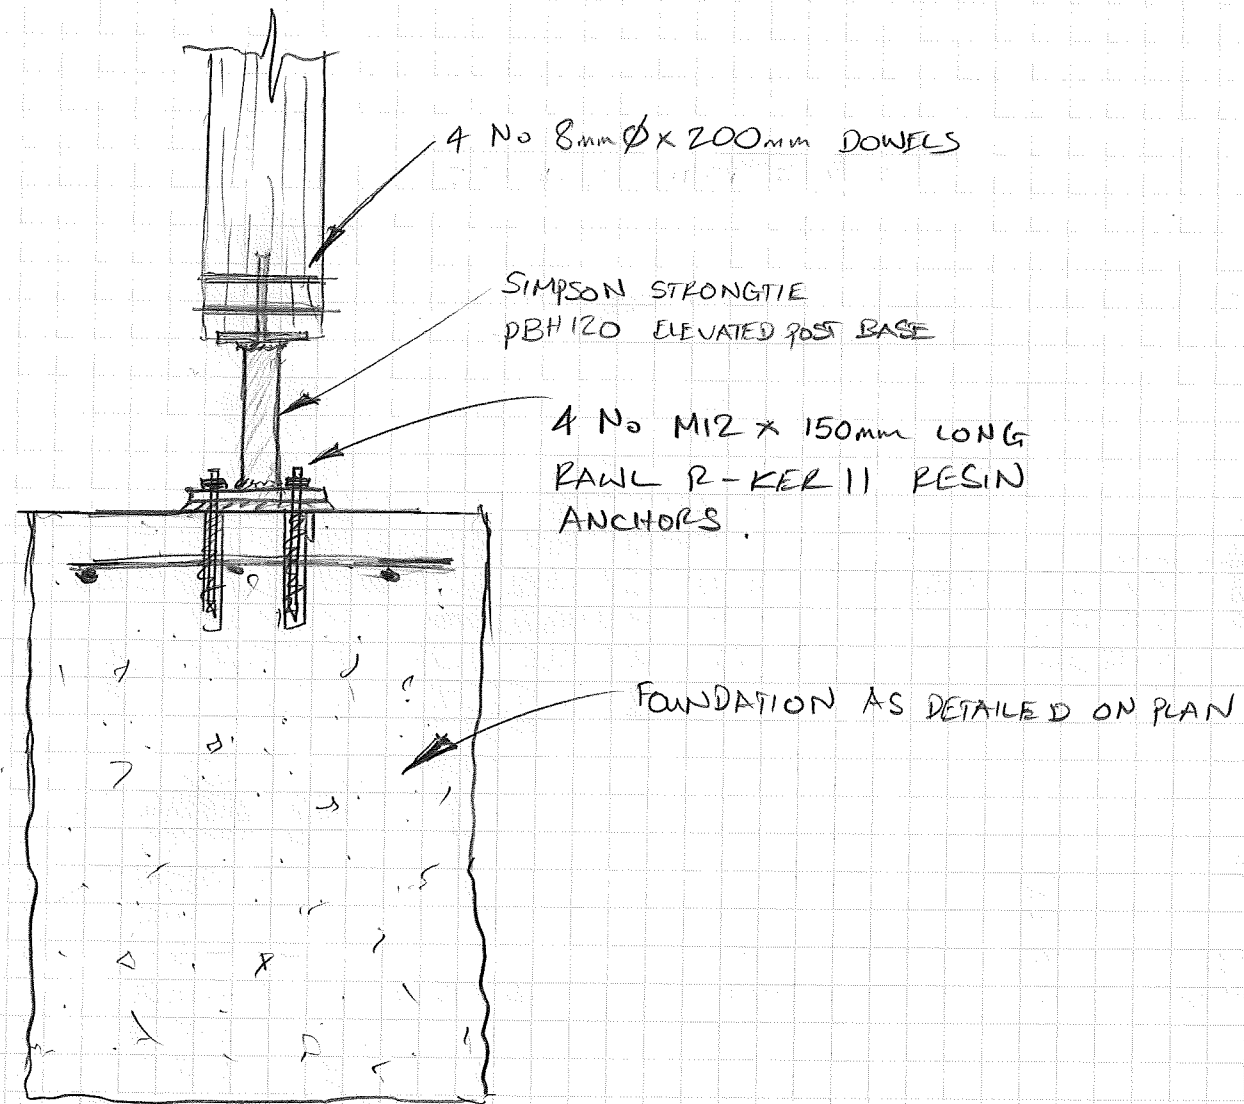 4 No 8mm Ø x 200mm DOWELS
SIMPSON STRONGTIE
PBH120 ELEVATED POST BASE
4 No M12 x 150mm LONG
RAWL R-KER II RESIN
ANCHORS.
FOUNDATION AS DETAILED ON PLAN